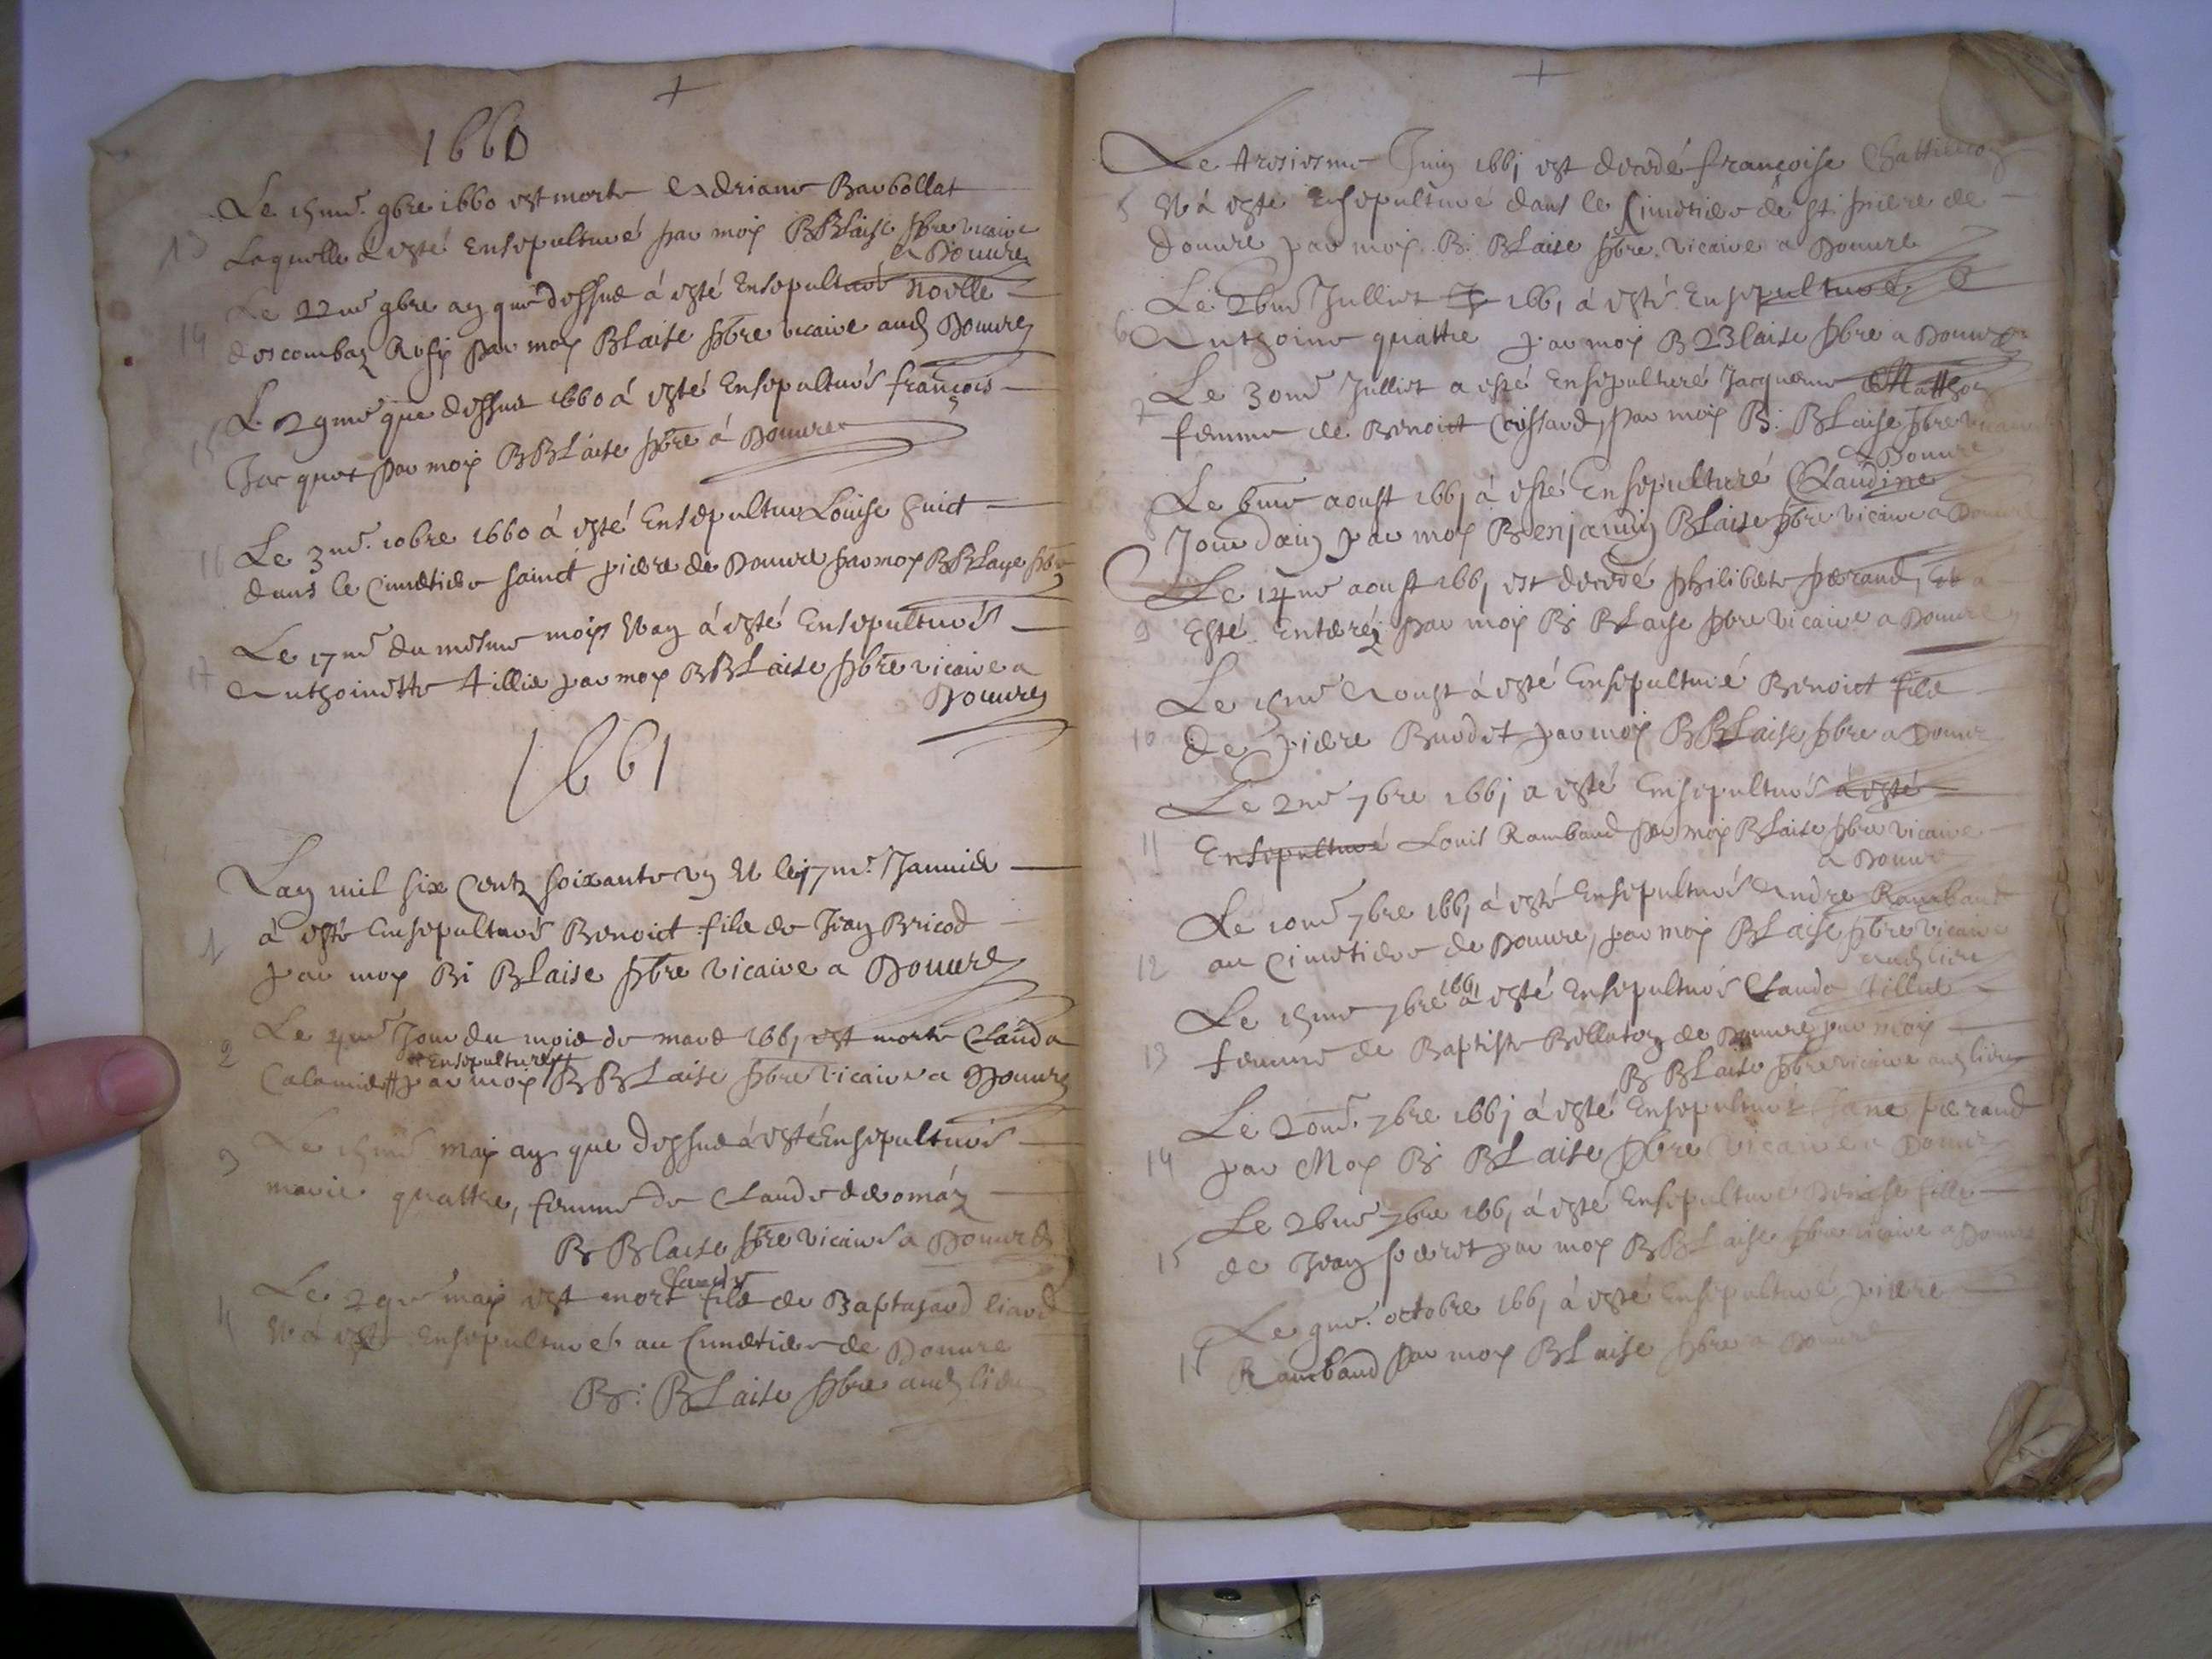 1660
Le 15me. 9bre 1660 est morte Adriane Barbollat
13 Laquelle a esté Ensepulturé par moy B Blaise pbre vicaire
a Douvres
Le 22me 9bre an que dessus á esté Ensepulturé Noelle
14 descombaz par moy Blaise pbre vicaire aud Douvres
Le 29me que dessus 1660 á esté Ensepulturés françois
15 Jacquet par moy B Blaise pbre á Douvres
Le 3me. 10bre 1660 á esté Ensepulture Louise Guict
16 dans le Cimetiere sainct piere de Douvre par moy B Blaise pbre
Le 17me du mesme mois Et an á esté Ensepulturés
17 Anthoinette tillier par moy B Blaise pbre vicaire a
Douvres
1661
Lan mil six Centz soixante un Et le 17me. Janvier
1 á esté Ensepulturés Benoict fils de Jean Bricod
par moy B: Blaise pbre vicaire a Douvres
Le 4me Jour du mois de mars 1661 est morte Clauda
2 Ensepulturés
Calamier par moy B Blaise pbre vicaire a Douvres
Le 15me may an que dessus á esté Ensepulturés
3 marie quattre, femme de Claude
B Blaise pbre vicaire a Douvres
Claude
Le 29me may est mort fils de liard
4 Et á esté Ensepulturé au Cimetiere de Douvre
B: Blaise pbre aud lieu
Le troisiesme Juin 1661 est decedé françoise
5 Et á esté Ensepulturé dans le Cimetiere de st piere de
Douvre par moy B: Blaise pbre vicaire a Douvre
Le 26me Julliet 1661 á esté Ensepulturé
6 Anthoine quattre par moy B Blaise pbre a Douvre
Le 30me Julliet a esté Ensepulturé Jacqueme Matthon
7 femme de Benoict Crissard, par moy B: Blaise pbre vicaire
a Douvre
Le 6me aoust 1661 á esté Ensepulturé Claudine
8 Jourdain par moy Benjamin Blaise pbre vicaire a Douvre
Le 14me aoust 1661 est decedé philiberte perand, Et a
9 Esté Enteréz par moy B: Blaise pbre vicaire a Douvre
Le 15me Aoust á esté Ensepulturé Benoict fils
10 de piere Burdet par moy B Blaise pbre a Douvre
Le 2me 7bre 1661 a esté Ensepulturés á esté
11 Ensepulturé Louis Rambaud par moy Blaise pbre vicaire
a Douvre
Le 10me 7bre 1661 á esté Ensepulturés Andre Rambaud
12 au Cimetiere de Douvre, par moy Blaise pbre vicaire
aud lieu
Le 15me 7bre 1661 á esté Ensepulturés Clauda tillier
13 femme de Baptiste Bellaton de Douvre par moy
B Blaise pbre vicaire aud lieu
Le 20me. 7bre 1661 á esté Ensepulturés Jane perand
14 par Moy B: Blaise pbre vicaire a Douvre
Le 26me 7bre 1661 á esté Ensepulturé Denise fille
15 de Jean par moy B Blaise pbre vicaire a Douvre
Le 9me. octobre 1661 á esté Ensepulturé piere
Rambaud par moy Blaise pbre a Douvre